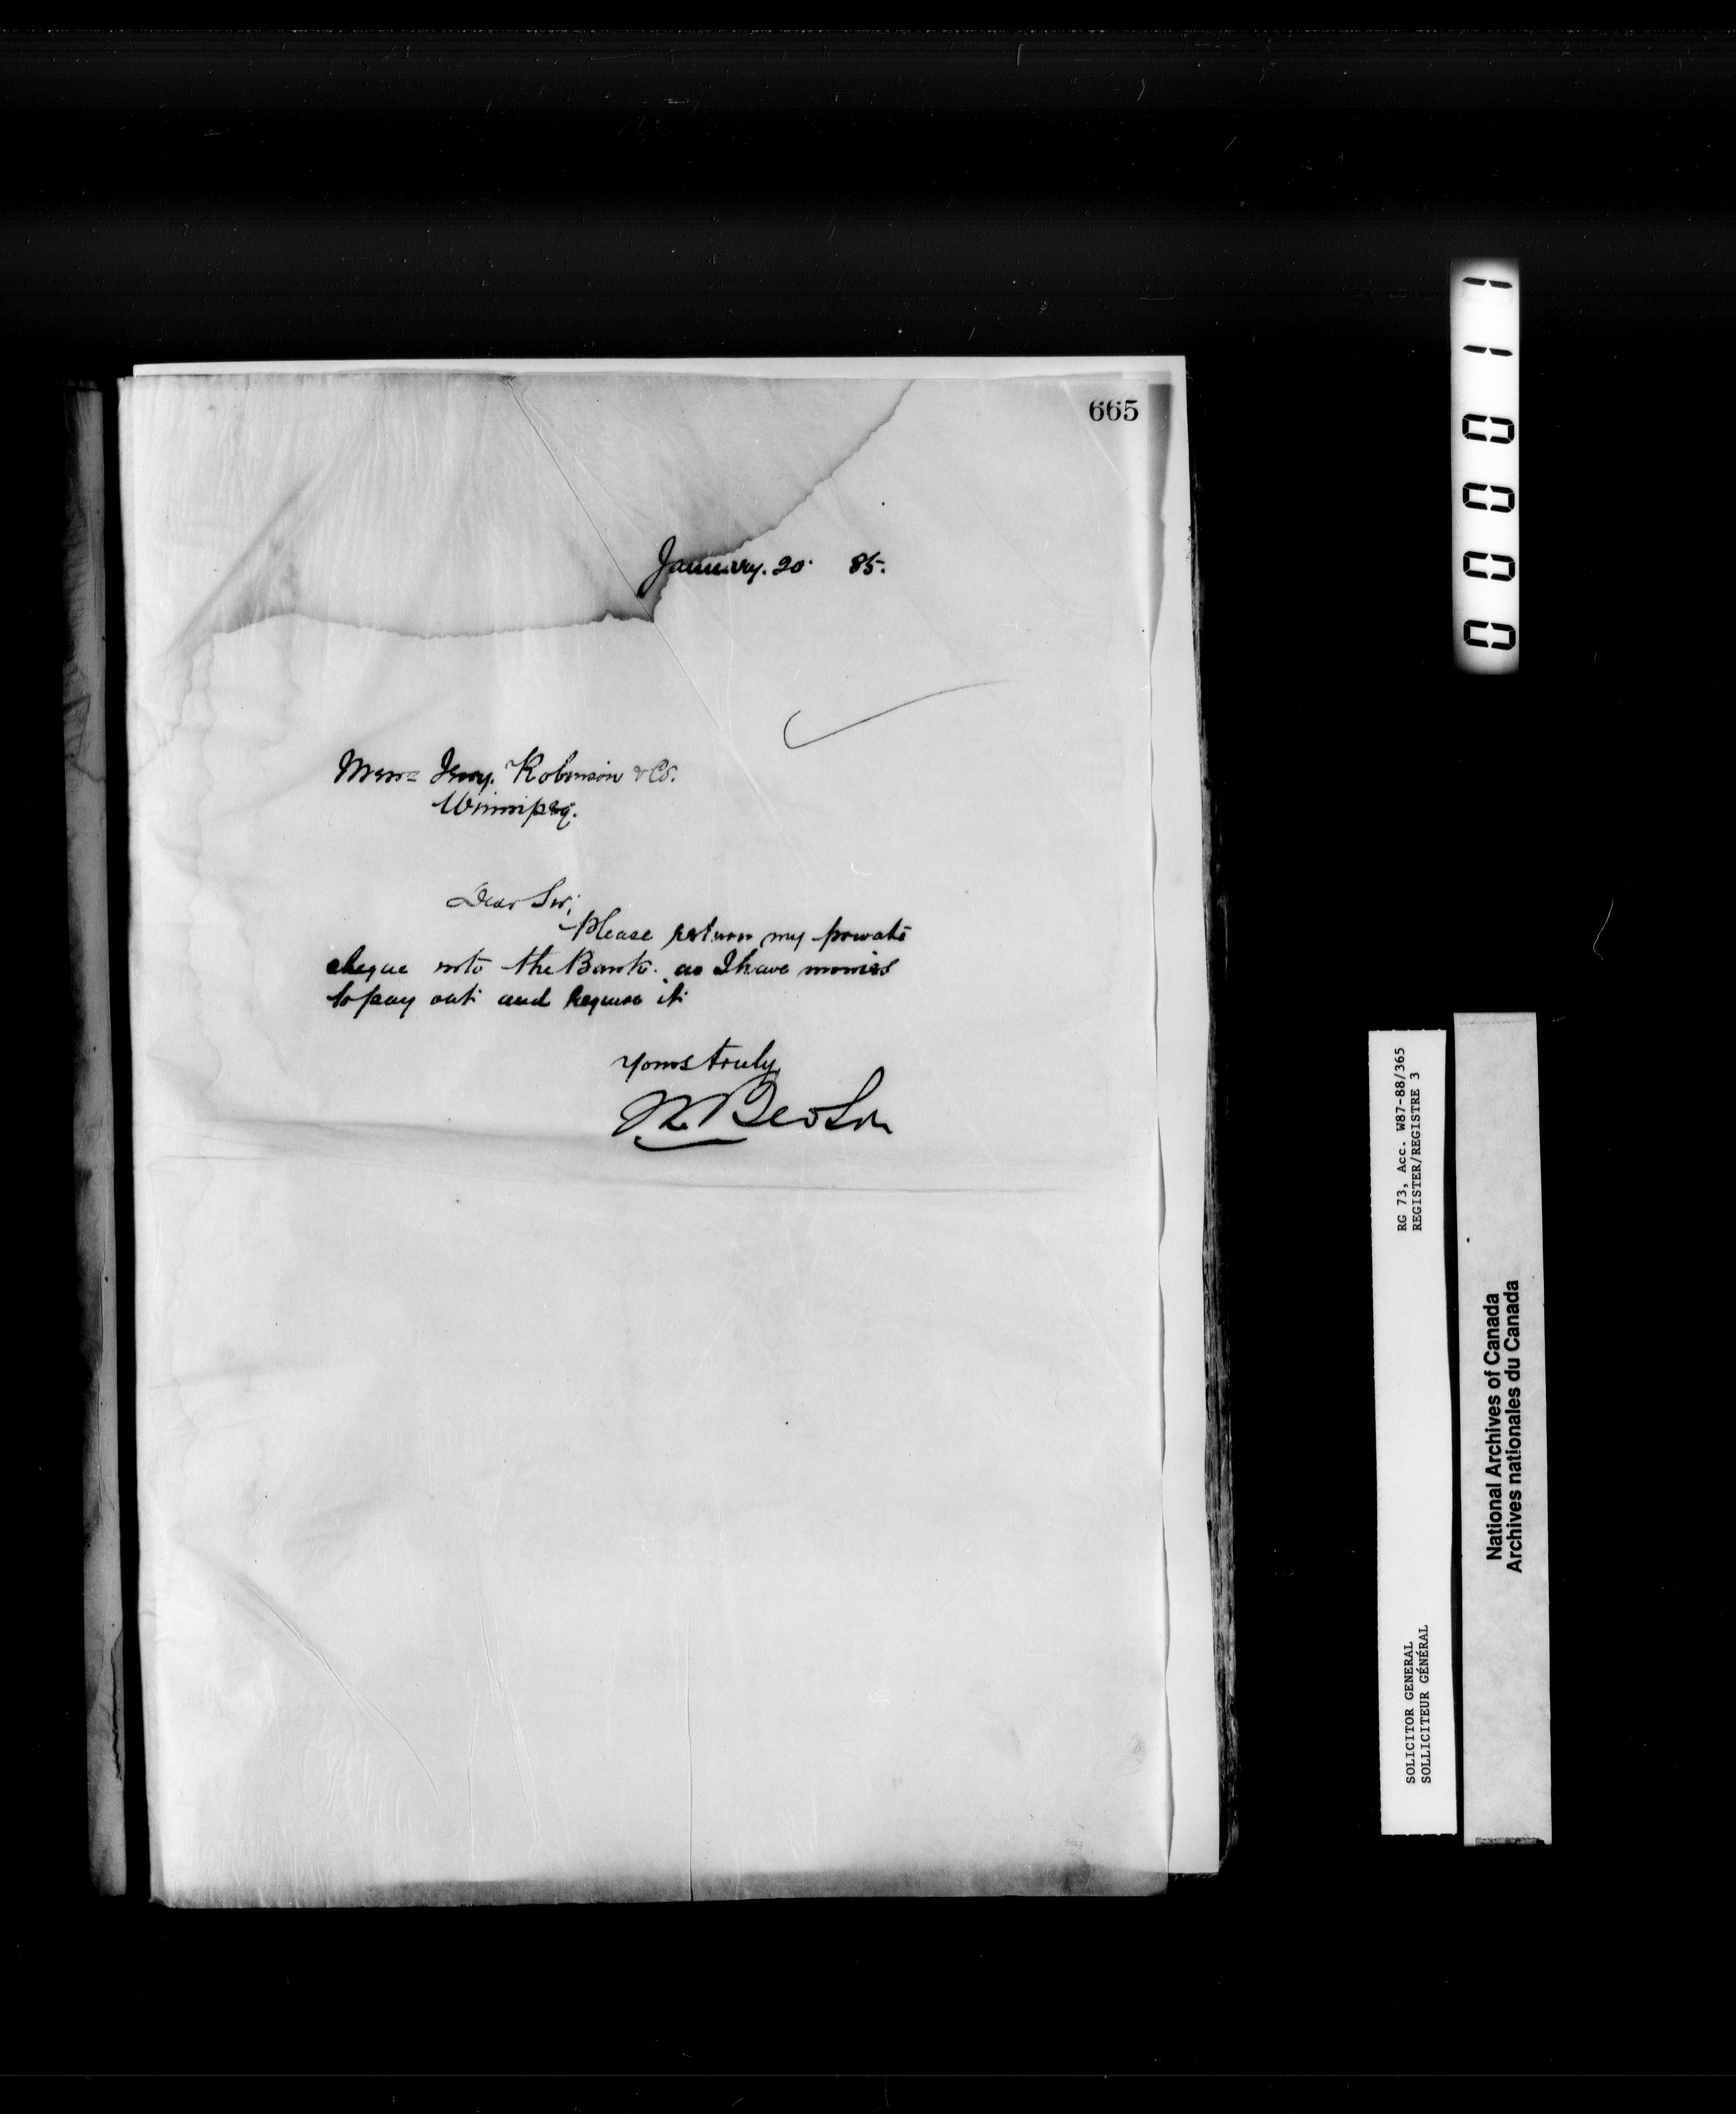 665
January. 20. 85.
Messrs Jerry. Robinson & Co.
Winnipeg.
Dear Sir;
Please return my private
cheque into the Bank. as I have monies
to pay out and require it
Yours truly
000011
RG 73, Acc. W87-88/365
REGISTER/REGISTRE 3
SOLICITOR GENERAL
SOLLICITEUR GÉNÉRAL
National Archives of Canada
Archives nationales du Canada